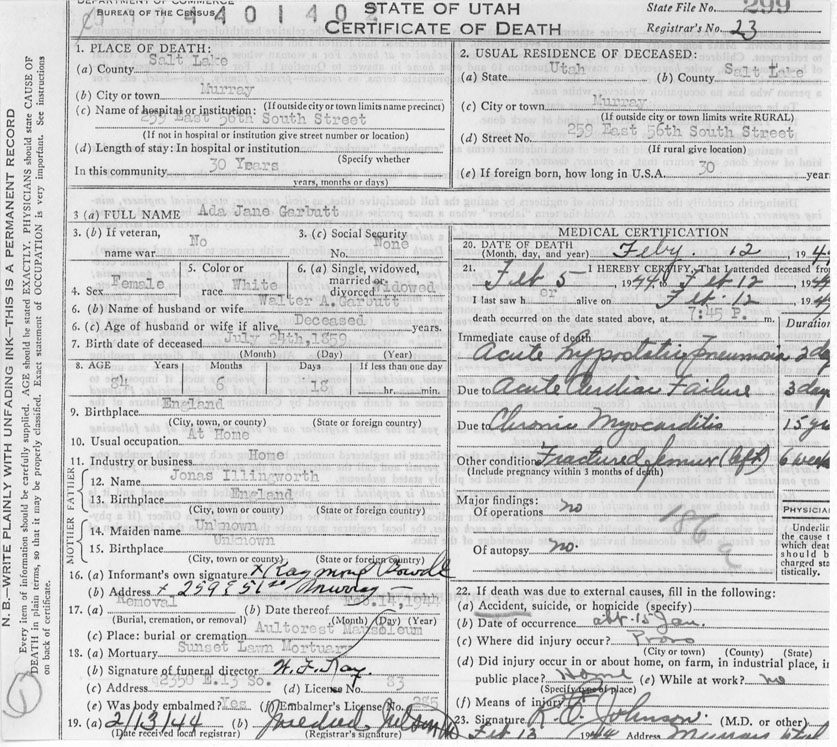 DEPARTMENT OF COMMERCE
BUREAU OF THE CENSUS
4401402
STATE OF UTAH
CERTIFICATE OF DEATH
State File No. 299
Registrar's No. 23
N. B.—WRITE PLAINLY WITH UNFADING INK—THIS IS A PERMANENT RECORD
Every item of information should be carefully supplied. AGE should be stated EXACTLY. PHYSICIANS should state CAUSE OF
DEATH in plain terms, so that it may be properly classified. Exact statement of OCCUPATION is very important. See instructions
on back of certificate.
1. PLACE OF DEATH:
(a) County Salt Lake
(b) City or town Murray
(c) Name of hospital or institution: (If outside city or town limits name precinct)
259 East 56th South Street
(If not in hospital or institution give street number or location)
(d) Length of stay: In hospital or institution:
(Specify whether
In this community 30 Years
years, months or days)
2. USUAL RESIDENCE OF DECEASED:
(a) State Utah (b) County Salt Lake
(c) City or town Murray
(If outside city or town limits write RURAL)
(d) Street No. 259 East 56th South Street
(If rural give location)
(e) If foreign born, how long in U.S.A. 30 years
3 (a) FULL NAME Ada Jane Garbutt
3. (b) If veteran, name war No
3. (c) Social Security No. None
4. Sex Female
5. Color or race White
6. (a) Single, widowed, married or divorced Widowed
6. (b) Name of husband or wife Walter A. Garbutt
6. (c) Age of husband or wife if alive, Deceased years.
7. Birth date of deceased July 24th, 1859
(Month) (Day) (Year)
8. AGE Years Months Days If less than one day
84 6 18 hr. min.
9. Birthplace England
(City, town, or county) (State or foreign country)
10. Usual occupation At Home
11. Industry or business Home
FATHER
12. Name Jonas Illingworth
13. Birthplace England
(City, town, or county) (State or foreign country)
MOTHER
14. Maiden name Unknown
15. Birthplace Unknown
(City, town or county) (State or foreign country)
16. (a) Informant's own signature x Raymond
(b) Address Murray
17. (a) Removal (b) Date thereof Feb. 14, 1944
(Burial, cremation, or removal) (Month) (Day) (Year)
(c) Place: burial or cremation Aultorest Mausoleum
18. (a) Mortuary Sunset Lawn Mortuary
(b) Signature of funeral director
(c) Address 2350 E. 13 So. (d) License No. 83
(e) Was body embalmed? Yes (f) Embalmer's License No.
19. (a) 2/13/44 (b)
(Date received local registrar) (Registrar's signature)
MEDICAL CERTIFICATION
20. DATE OF DEATH
(Month, day, and year) Feby. 12, 194
21. I HEREBY CERTIFY, That I attended deceased from
Feb 5- 1944, to Feb 12 194
I last saw her alive on Feb. 12 194
death occurred on the date stated above, at 7:45 P. m.
Duration
Immediate cause of death
Acute Hypostatic Pneumonia 3 day
Due to Acute Cardiac Failure 3 day
Due to Chronic Myocarditis 15 y
Other conditions Fractured femur (left) 6 week
(Include pregnancy within 3 months of death)
Major findings:
Of operations no
186 a
Of autopsy no.
PHYSICIAN
Underline
the cause t
which deat
should b
charged sta
tistically.
22. If death was due to external causes, fill in the following:
(a) Accident, suicide, or homicide (specify)
(b) Date of occurrence abt. 15 Jan.
(c) Where did injury occur? Provo
(City or town) (County) (State)
(d) Did injury occur in or about home, on farm, in industrial place, in
public place? Home (e) While at work? no
(Specify type of place)
(f) Means of injury
23. Signature Johnson (M.D. or other)
Feb 13 1944 Address Murray Utah